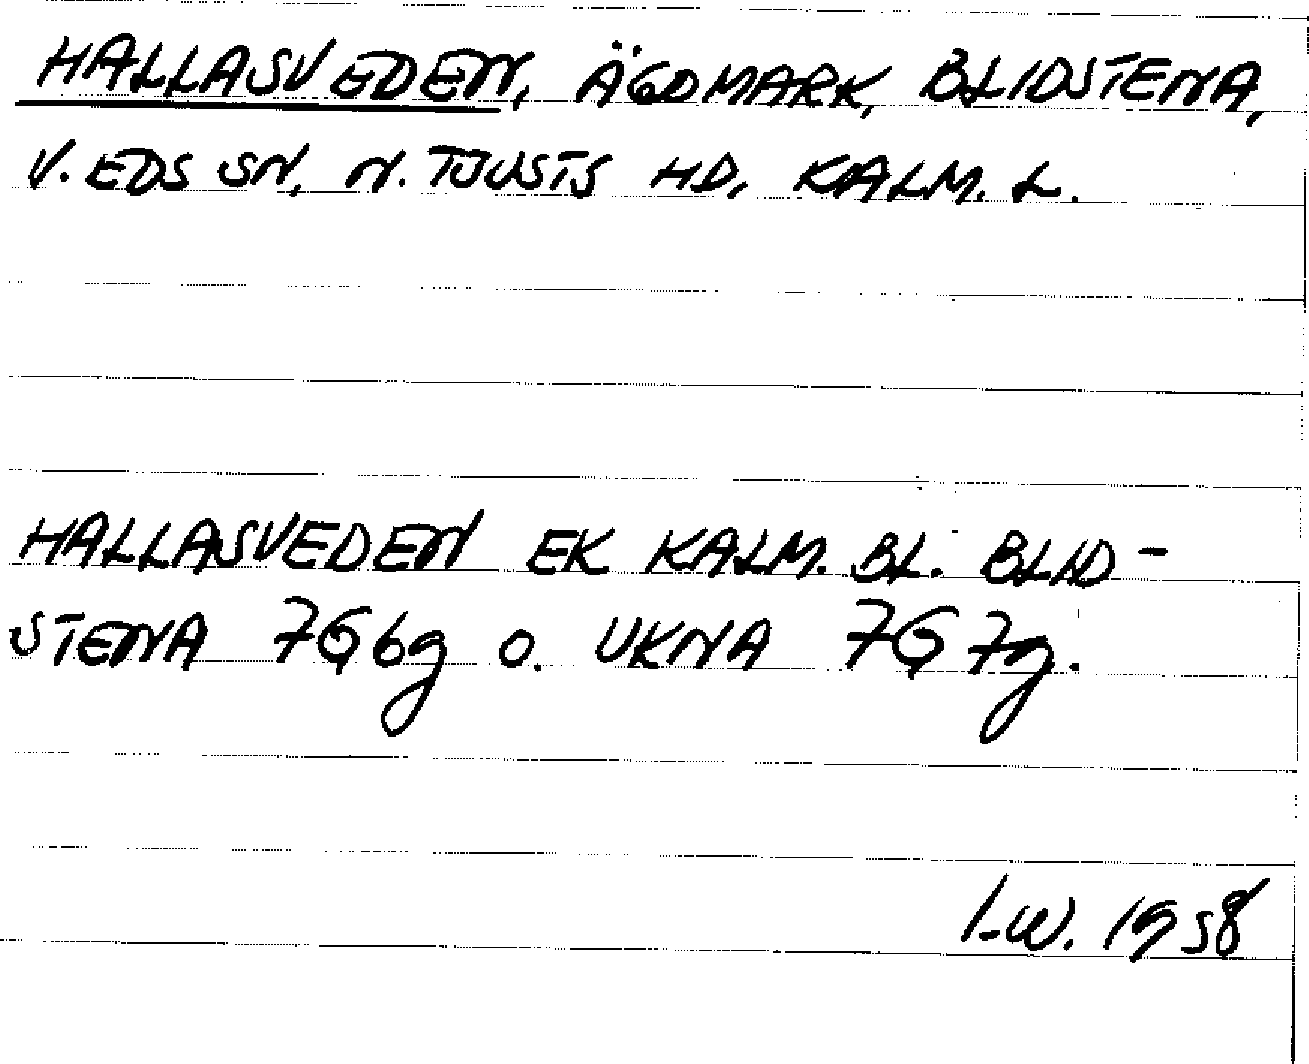 HALLASVEDEN, ÄGOMARK, BLIDSTENA,
V. EDS SN, N. TJUSTS HD, KALM. L.
HALLASVEDEN EK KALM. BL. BLID-
STENA 7G6g O. UKNA 7G7g.
I-W. 1958